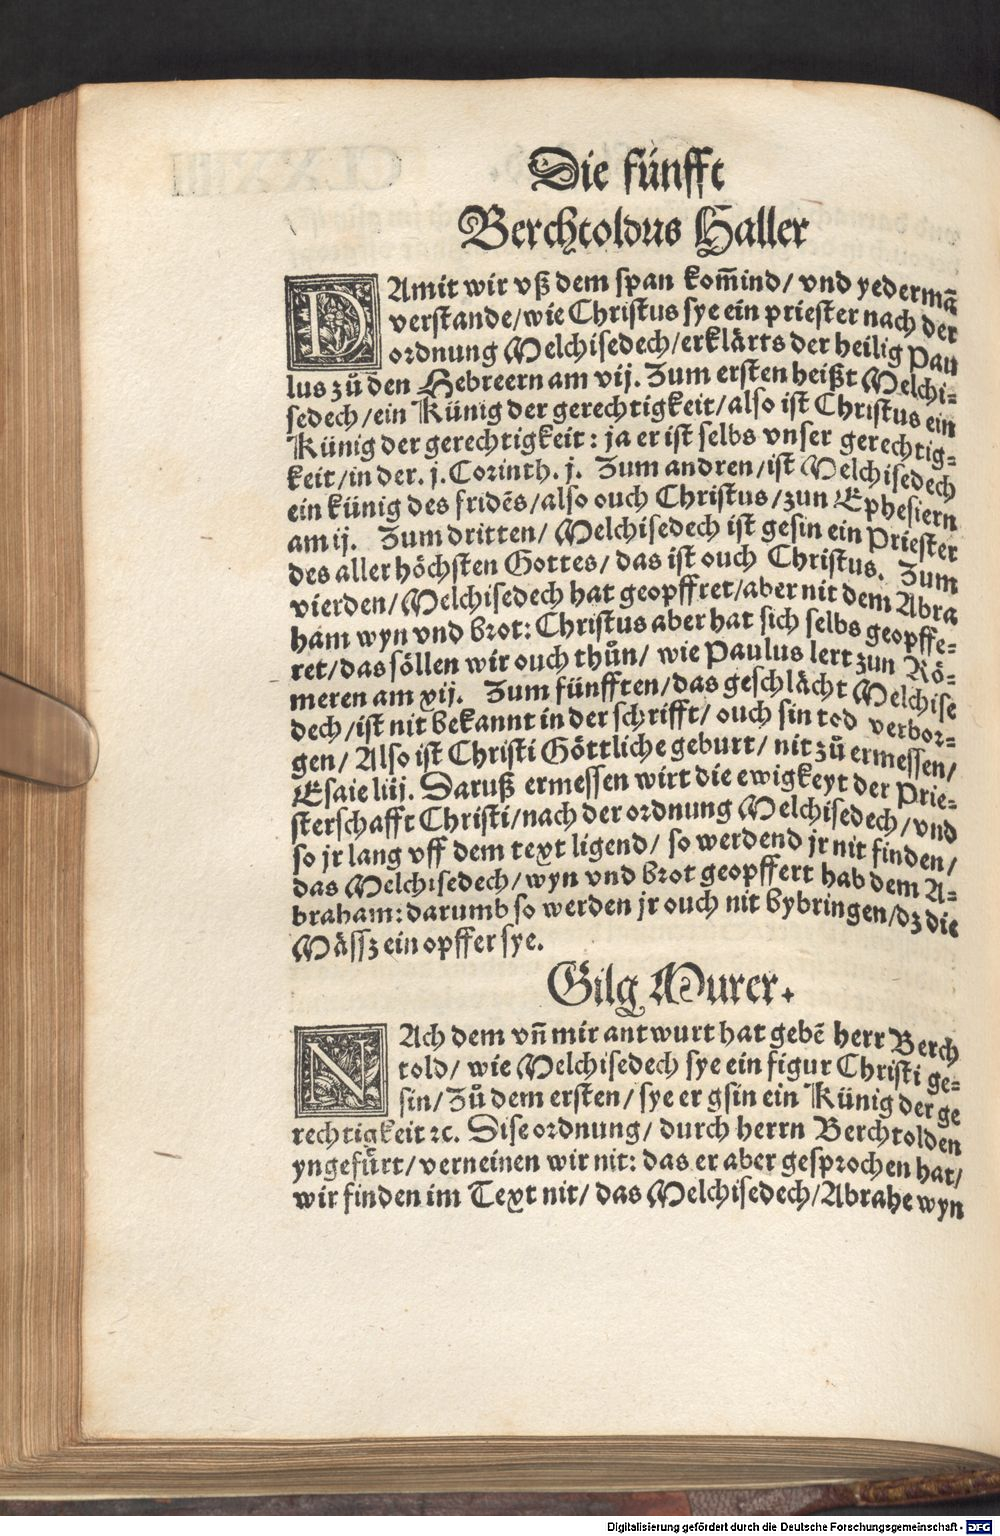 Die fünfft
Berchtoldus Haller
DAmit wir vß dem span kom̄ind/ vnd yedermā
verstande/ wie Christus sye ein priester nach der
ordnung Melchisedech/ erklärts der heilig Pau
lus zů den Hebreern am vij. Zum ersten heißt Melchi-
sedech/ ein Künig der gerechtigkeit/ also ist Christus ein
Künig der gerechtigkeit: ja er ist selbs vnser gerechtig-
keit/ in der. j. Corinth. j. Zum andren/ ist Melchisedech
ein künig des fridēs/ also ouch Christus/ zun Ephesiern
am ij. Zum dritten/ Melchisedech ist gesin ein Priester
des aller höchsten Gottes/ das ist ouch Christus. Zum
vierden/ Melchisedech hat geopffret/ aber nit dem Abra
ham wyn vnd brot: Christus aber hat sich selbs geopffe-
ret/ das söllen wir ouch thůn/ wie Paulus lert zun Rö-
meren am xij. Zum fünfften/ das geschlächt Melchise
dech/ ist nit bekannt in der schrifft/ ouch sin tod verbor-
gen/ Also ist Christi Göttliche geburt/ nit zů ermessen/
Esaie liij. Daruß ermessen wirt die ewigkeyt der Prie-
sterschafft Christi/ nach der ordnung Melchisedech/ vnd
so jr lang vff dem text ligend/ so werdend jr nit finden/
das Melchisedech/ wyn vnd brot geopffert hab dem A-
braham: darumb so werden jr ouch nit bybringen/ dz die
Mässz ein opffer sye.
Gilg Murer.
NAch dem vn̄ mir antwurt hat gebē herr Berch
told/ wie Melchisedech sye ein figur Christi ge-
sin/ Zů dem ersten/ sye er gsin ein Künig der ge
rechtigkeit ꝛc. Dise ordnung/ durch herrn Berchtolden
yngefürt/ verneinen wir nit: das er aber gesprochen hat/
wir finden im Text nit/ das Melchisedech/ Abrahe wyn
Digitalisierung gefördert durch die Deutsche Forschungsgemeinschaft - DFG